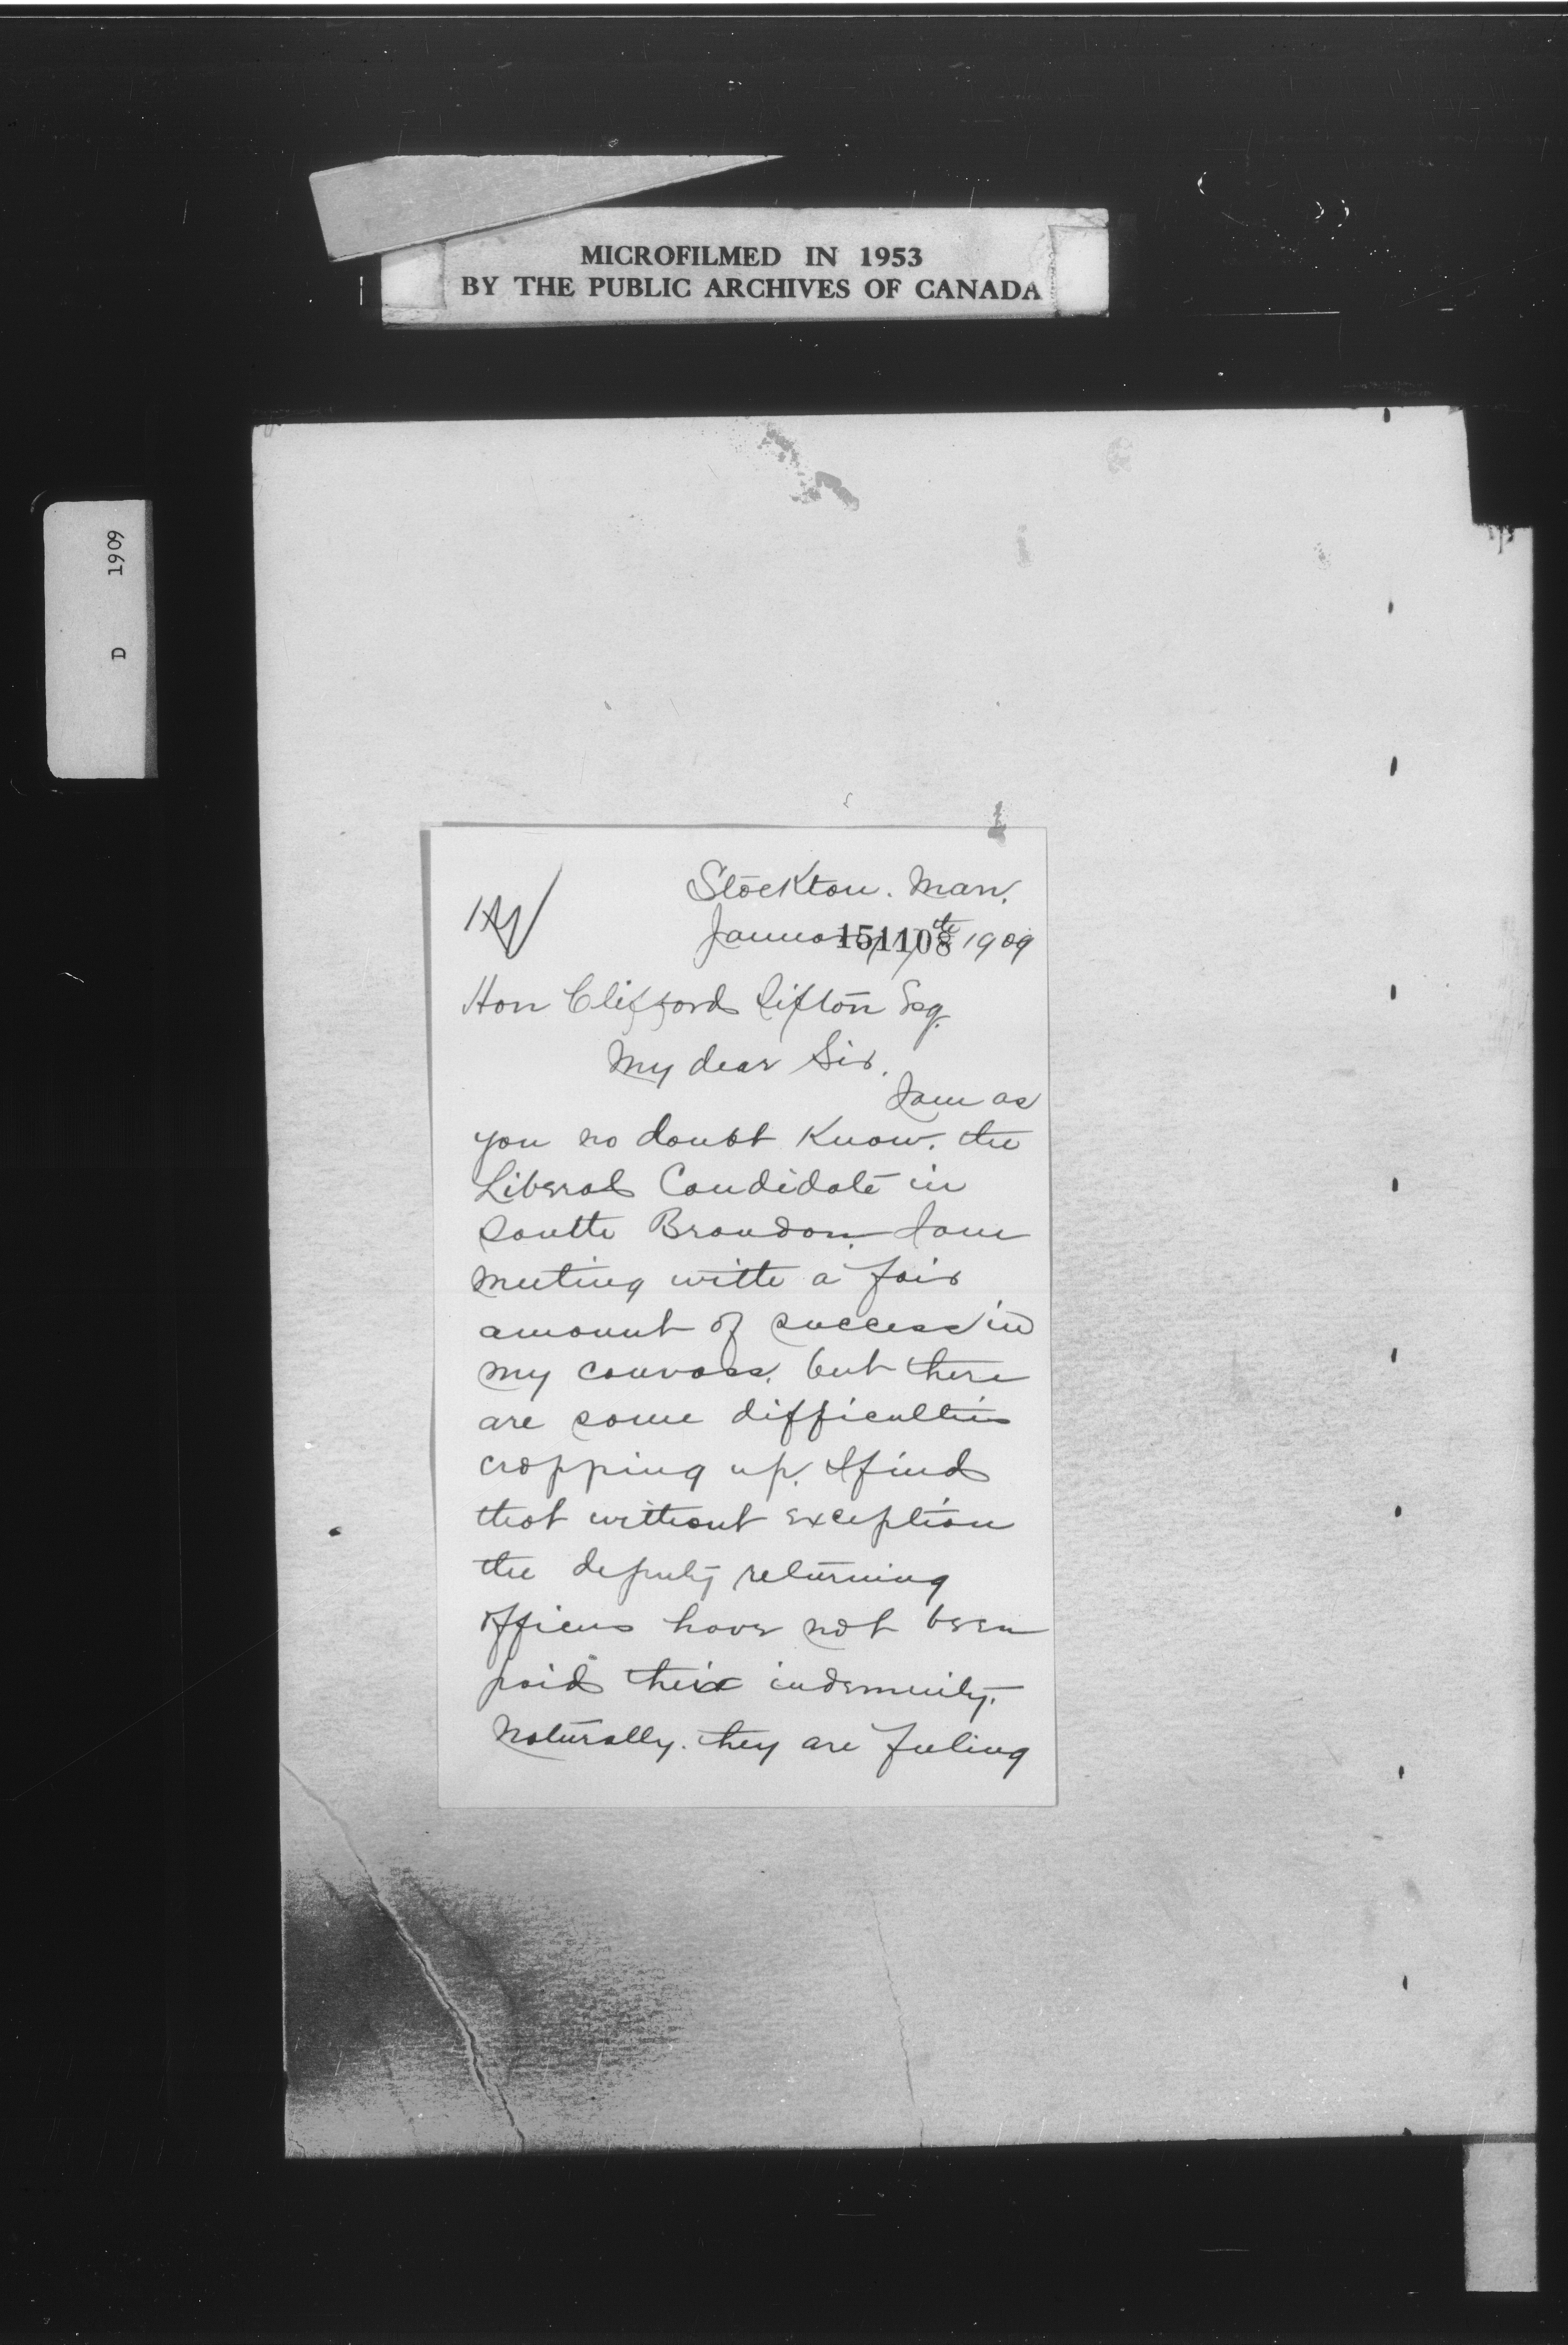 MICROFILMED IN 1953
BY THE PUBLIC ARCHIVES OF CANADA
D 1909
Stockton. Man.
January 151108 th 1909
Hon Clifford Sifton Esq.
My dear Sir.
I am as
you no doubt know. the
Liberal Candidate in
South Brandon. I am
meeting with a fair
amount of success in
my canvass. but there
are some difficulties
cropping up. I find
that without exception
the deputy returning
officers have not been
paid their indemnity.
Naturally. they are feeling